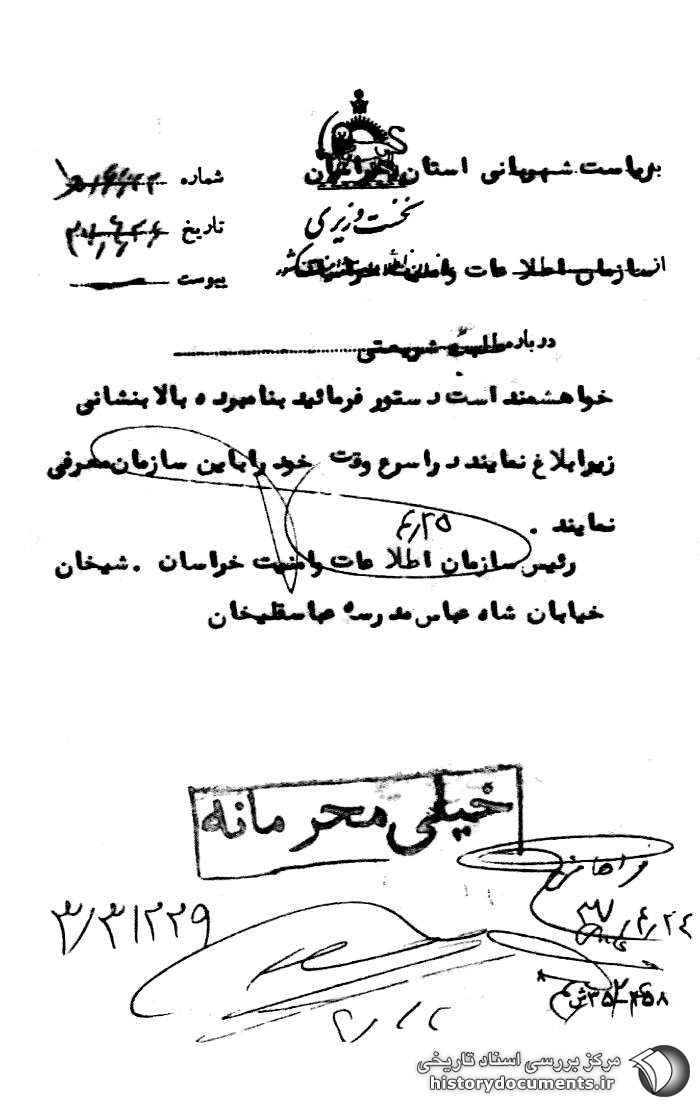 بریاست شهربانی استان خراسان
شماره
نخست وزیری
تاریخ
از سازمان اطلاعات وامنیت خراسان
کشور
پیوست
درباره طلبه شریعتی
خواهشمند است دستور فرمائید بنامبرده بالا بنشانی
زیر ابلاغ نمایند در اسرع وقت خود را باین سازمان معرفی
نمایند .
۴٫۲۵
رئیس سازمان اطلاعات وامنیت خراسان . شیخان
خیابان شاه عباس مدرسه عباسقلیخان
خیلی محرمانه
۳/۳۱۲۲۹
۳۷٫۴٫۲۴
مرکز بررسی اسناد تاریخی
historydocuments.ir